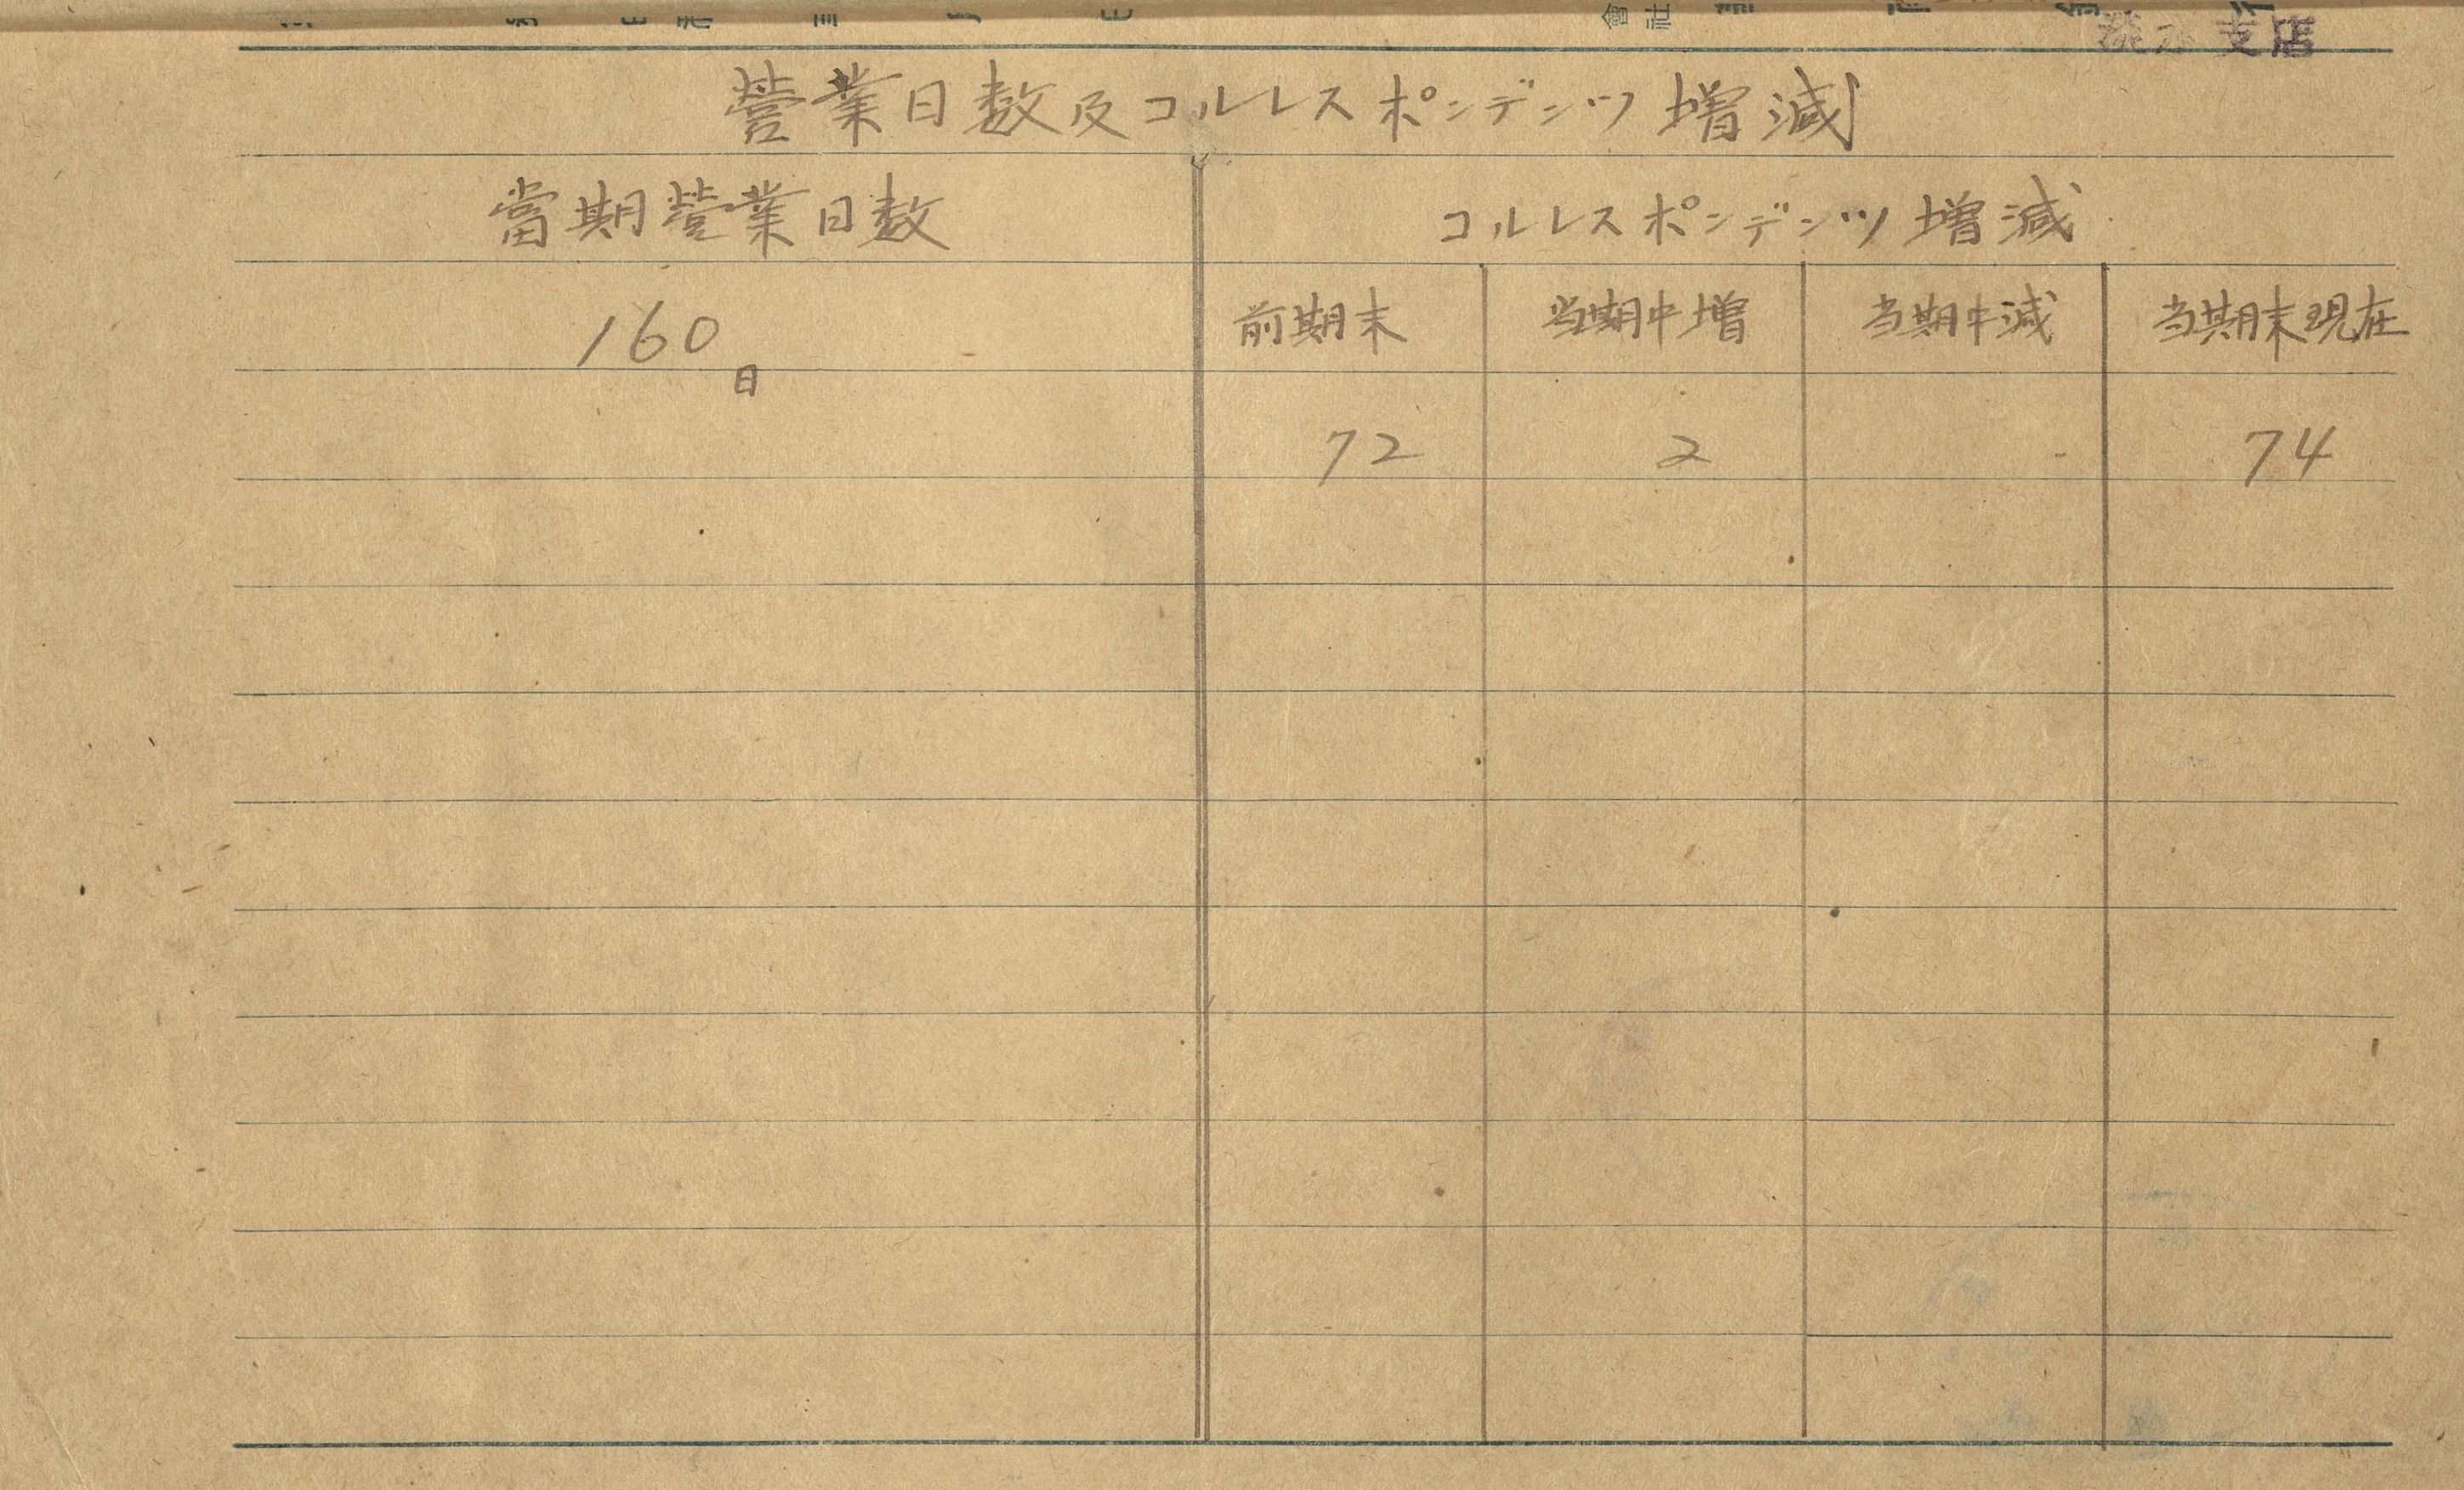 會社
支店
營業日数及コルレスポンデンツ増減
當期營業日数
コルレスポンデンツ増減
160日
前期末 当期中増 当期中減 当期末現在
72 2 - 74